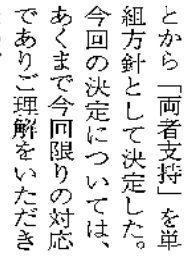 とから「両者支持」を単
組方針として決定した。
今回の決定については、
あくまで今回限りの対応
でありご理解をいただき